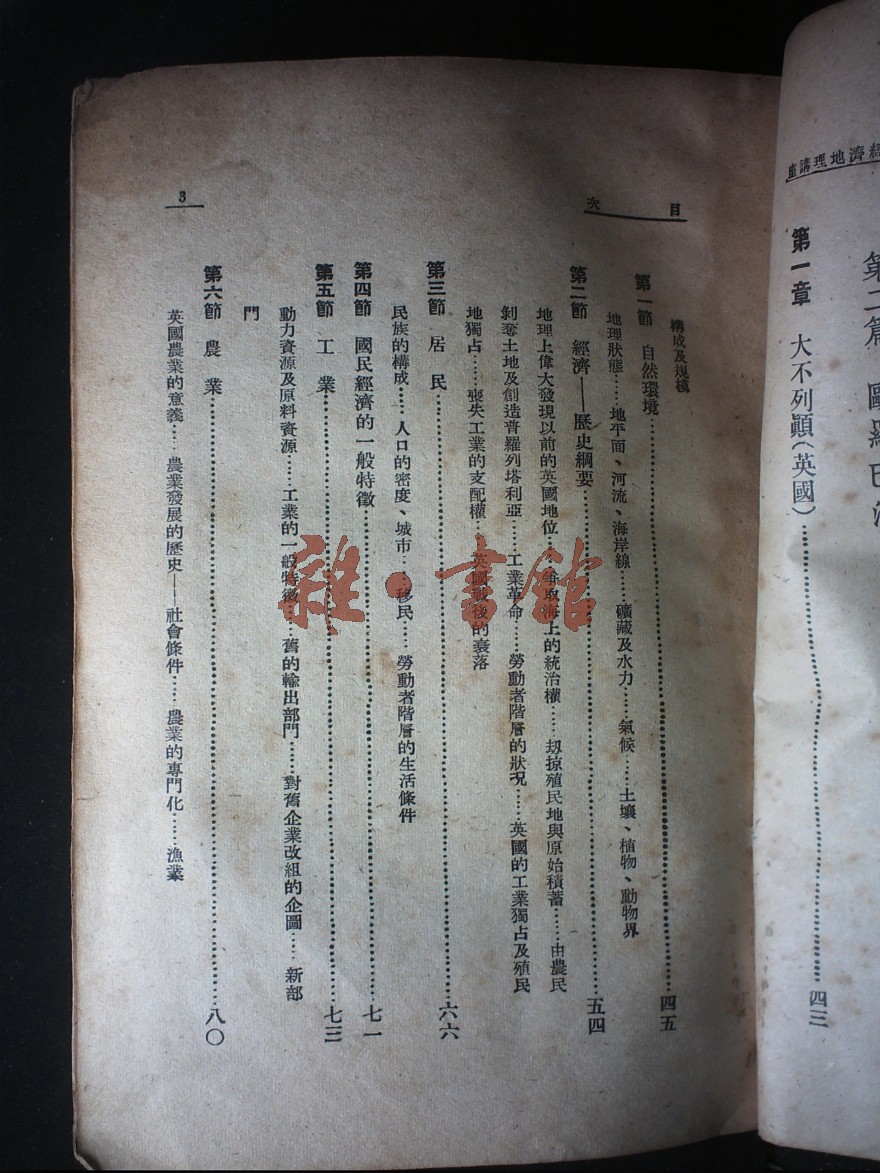 第一章 大不列顚（英國）……四三
目次
3
構成及規模
第一節 自然環境……四五
地理狀態……地平面、河流、海岸線……礦藏及水力……氣候……土壤、植物、動物界
第二節 經濟——歷史綱要……五四
地理上偉大發現以前的英國地位……爭取海上的統治權……刼掠殖民地與原始積蓄……由農民
剝奪土地及創造普羅列塔利亞……工業革命……勞動者階層的狀况……英國的工業獨占及殖民
地獨占……喪失工業的支配權……英國戰後的衰落
第三節 居民……六六
民族的構成……人口的密度、城市……移民……勞動者階層的生活條件
第四節 國民經濟的一般特徵……七一
第五節 工業……七三
動力資源及原料資源……工業的一般特徵……舊的輸出部門……對舊企業改組的企圖……新部
門
第六節 農業……八〇
英國農業的意義……農業發展的歷史——社會條件……農業的專門化……漁業
雜·書館